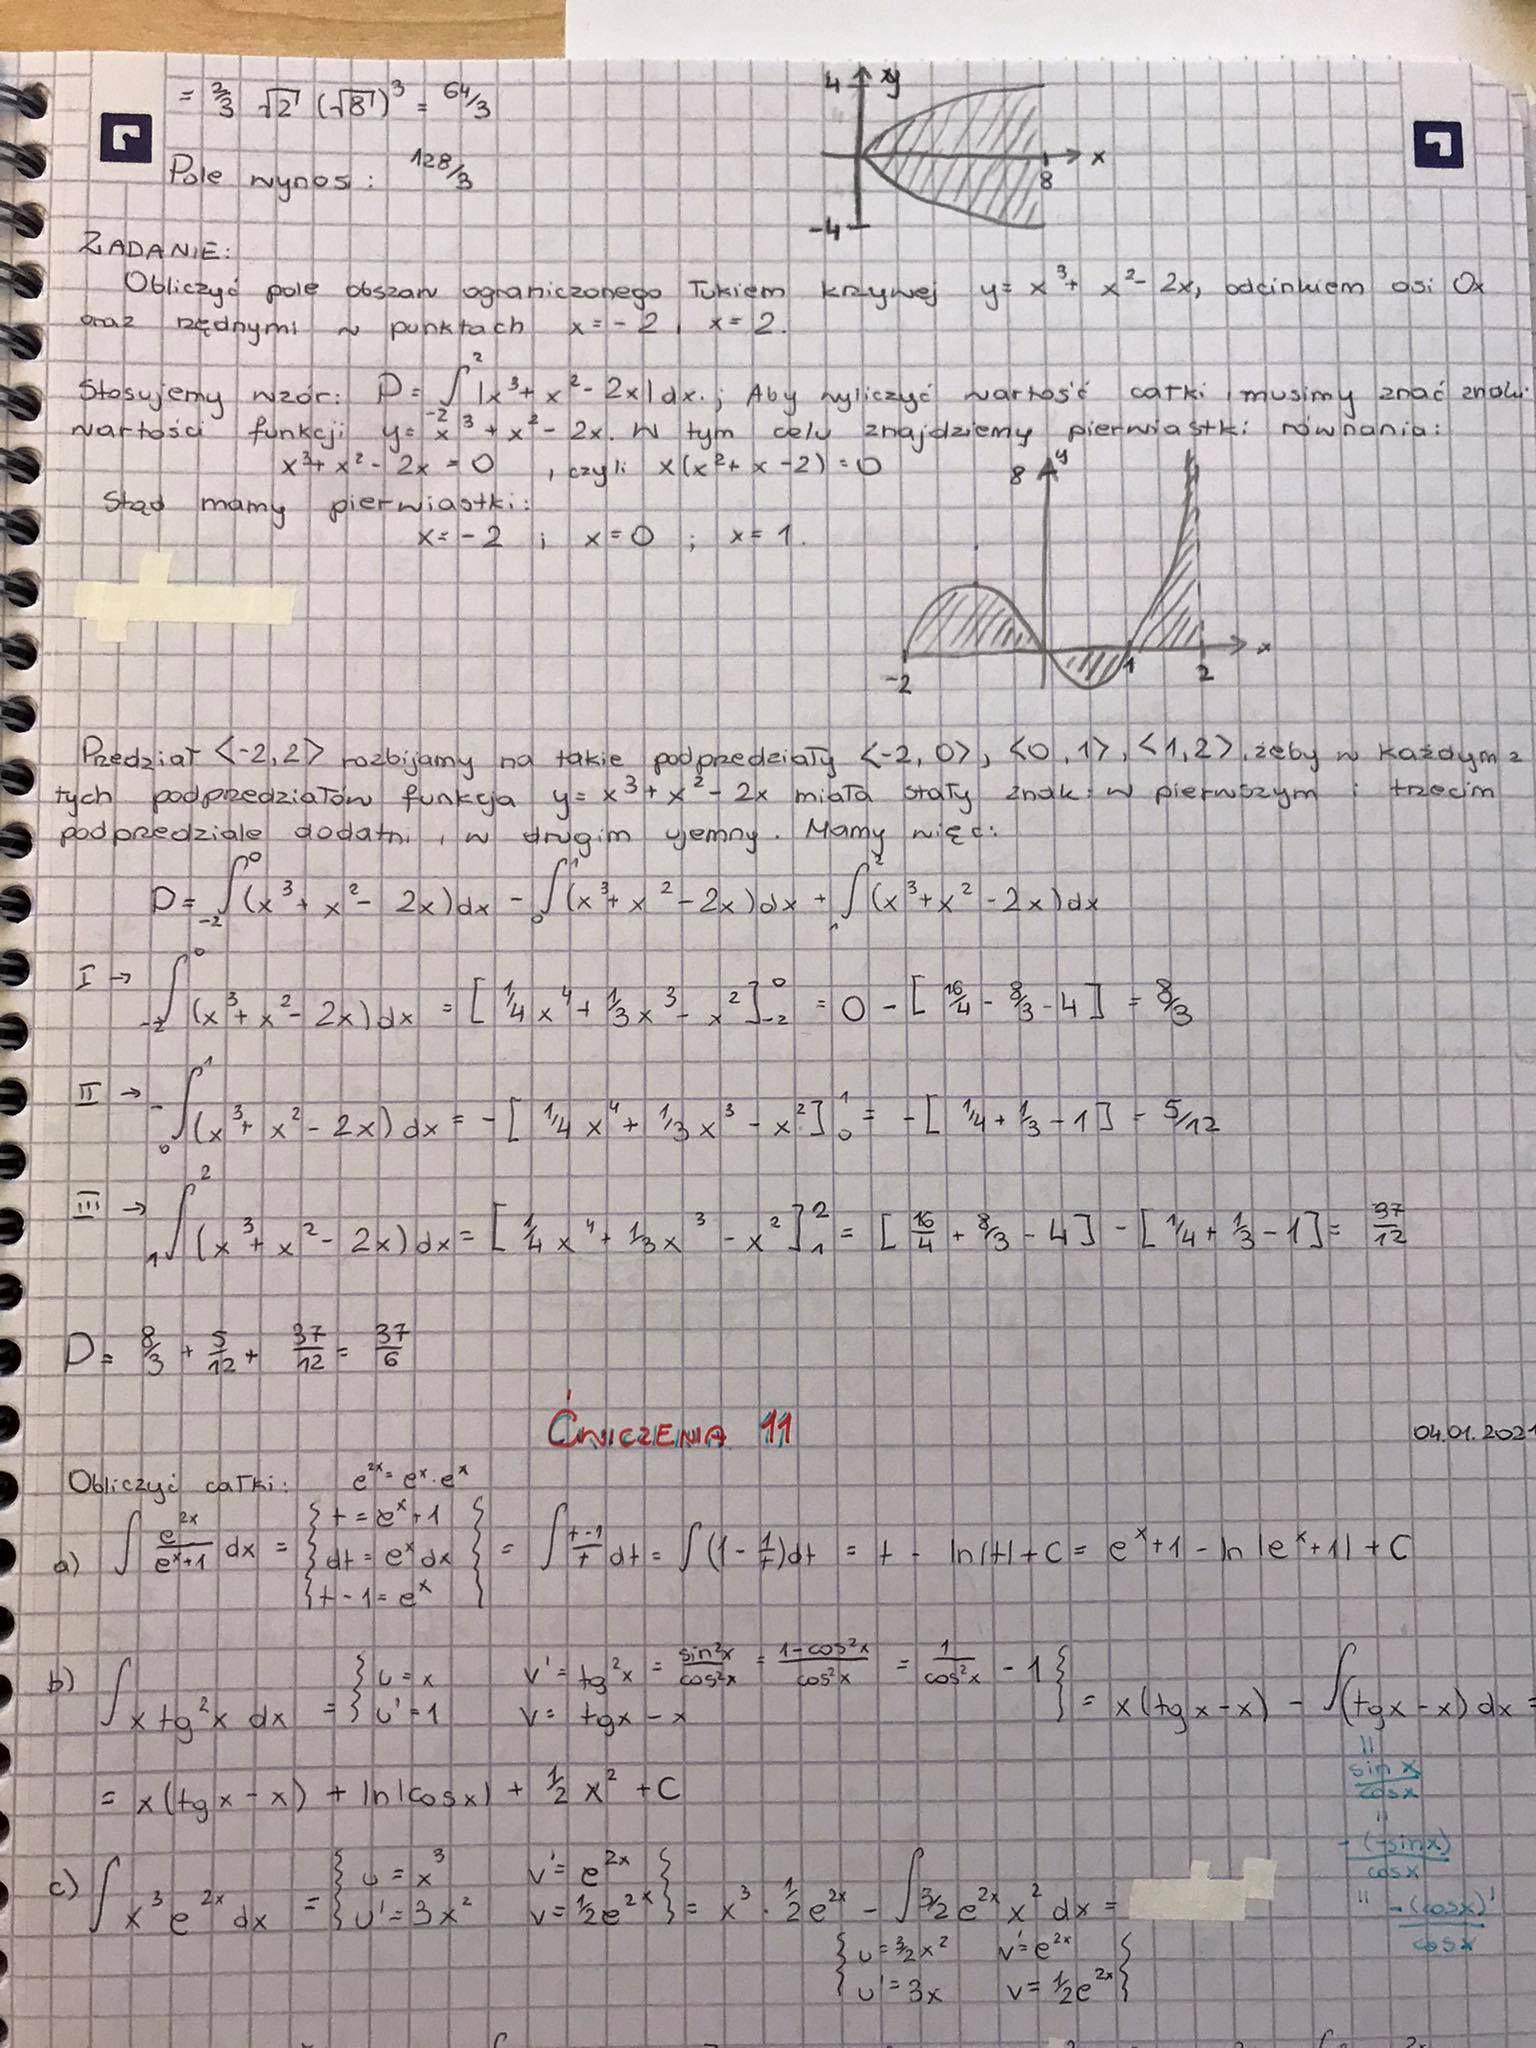 = 2/3 √2 (√8)³ = 64/3
Pole wynosi: 128/3
4 xy
x
8
-4
ZADANIE:
Obliczyć pole obszaru ograniczonego łukiem krzywej y = x³ + x² - 2x, odcinkiem osi Ox
oraz rzędnymi w punktach x = -2 i x = 2.
Stosujemy wzór: P = ∫₋₂² |x³ + x² - 2x| dx. ; Aby wyliczyć wartość całki, musimy znać znaki
wartości funkcji y = x³ + x² - 2x. W tym celu znajdziemy pierwiastki równania:
x³ + x² - 2x = 0 , czyli x(x² + x - 2) = 0
Stąd mamy pierwiastki:
x = -2 ; x = 0 ; x = 1.
8 y
x
-2 1 2
Przedział <-2, 2> rozbijamy na takie podprzedziały <-2, 0>, <0, 1>, <1, 2>, żeby w każdym z
tych podprzedziałów funkcja y = x³ + x² - 2x miała stały znak: w pierwszym i trzecim
podprzedziale dodatni, w drugim ujemny. Mamy więc:
P = ∫₋₂⁰ (x³ + x² - 2x) dx - ∫₀¹ (x³ + x² - 2x) dx + ∫₁² (x³ + x² - 2x) dx
I → ∫₋₂⁰ (x³ + x² - 2x) dx = [1/4 x⁴ + 1/3 x³ - x²]₋₂⁰ = 0 - [16/4 - 8/3 - 4] = 8/3
II → -∫₀¹ (x³ + x² - 2x) dx = -[1/4 x⁴ + 1/3 x³ - x²]₀¹ = -[1/4 + 1/3 - 1] = 5/12
III → ∫₁² (x³ + x² - 2x) dx = [1/4 x⁴ + 1/3 x³ - x²]₁² = [16/4 + 8/3 - 4] - [1/4 + 1/3 - 1] = 37/12
P = 8/3 + 5/12 + 37/12 = 37/6
ĆWICZENIA 11
04.01.2021
Obliczyć całki: e²ˣ = eˣ · eˣ
a) ∫ e²ˣ/(eˣ+1) dx = { t = eˣ + 1
dt = eˣ dx
t - 1 = eˣ } = ∫ (t-1)/t dt = ∫ (1 - 1/t) dt = t - ln|t| + C = eˣ + 1 - ln|eˣ + 1| + C
b) ∫ x tg²x dx = { u = x v' = tg²x = sin²x/cos²x = (1-cos²x)/cos²x = 1/cos²x - 1
u' = 1 v = tgx - x } = x(tgx - x) - ∫ (tgx - x) dx =
"
sin x/cos x
"
-(-sinx)/cosx
" -(cosx)'/cosx
= x(tgx - x) + ln|cosx| + 1/2 x² + C
c) ∫ x³ e²ˣ dx = { u = x³ v' = e²ˣ
u' = 3x² v = 1/2 e²ˣ } = x³ · 1/2 e²ˣ - ∫ 3/2 e²ˣ x² dx =
{ u = 3/2 x² v' = e²ˣ
u' = 3x v = 1/2 e²ˣ }